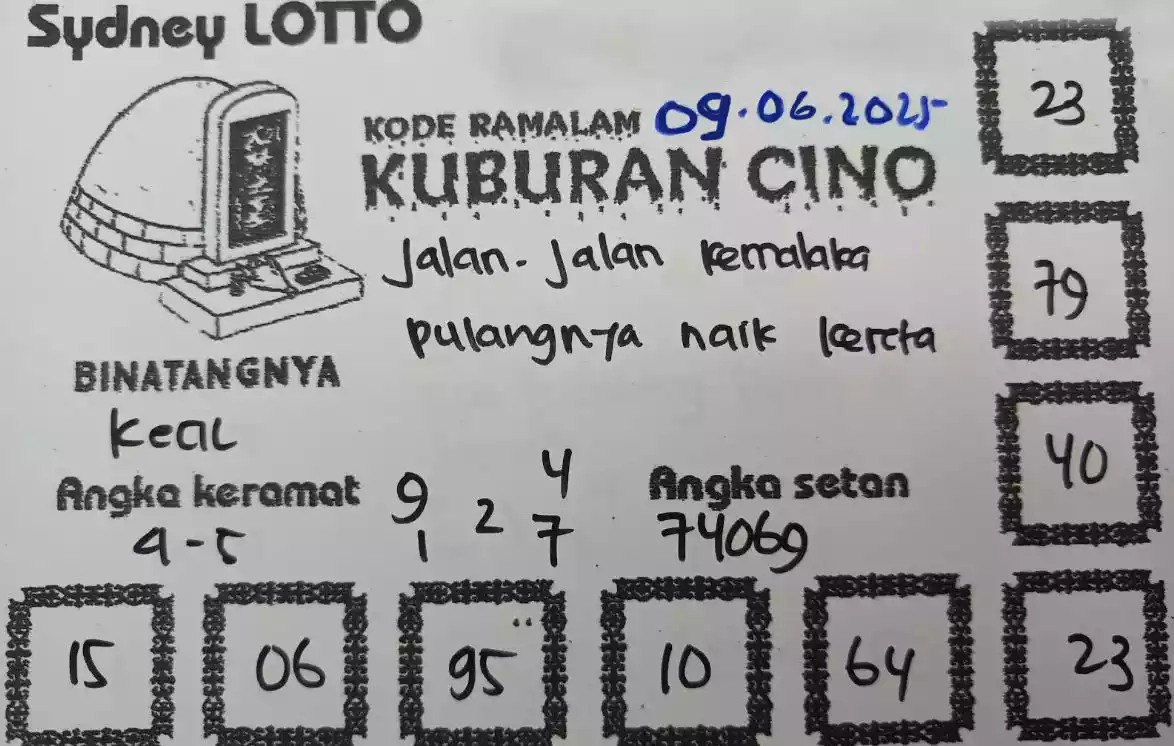 Sydney LOTTO
KODE RAMALAM 09.06.2025
KUBURAN CINO
Jalan-Jalan kemalaka
pulangnya naik kereta
BINATANGNYA
Angka keramat
9-5
9 4
2
1 7
Angka setan
74069
23
79
40
15 06 95 10 64 23